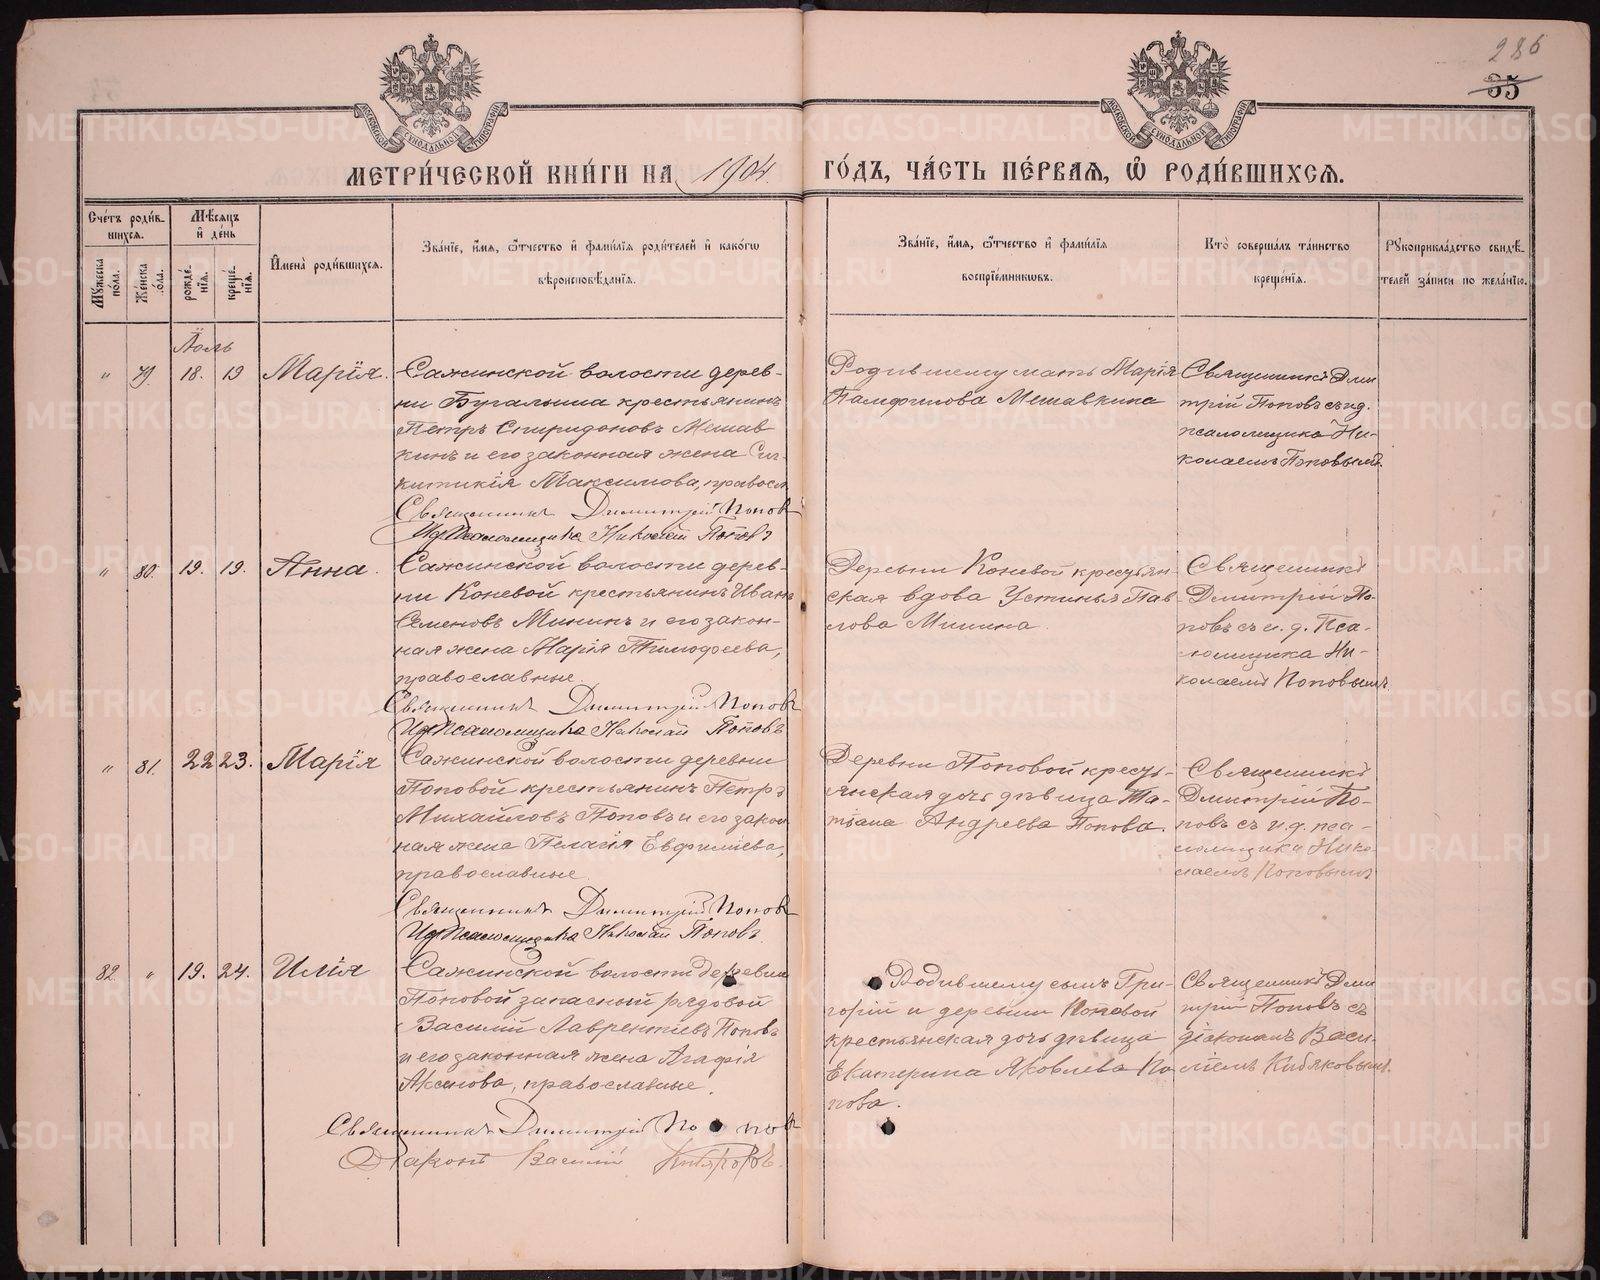 286
35
МЕТРИ́ЧЕСКОЙ КНИ́ГИ НА 1904 ГО́ДЪ, ЧА́СТЬ ПЕ́РВАѦ, Ѽ РОДИ́ВШИХСѦ.
Сче́тъ роди́в-
шихсѧ.
Мꙋжеска по́ла.
Же́нска по́ла.
Мѣ́сѧцъ
и҆ де́нь
рожде́нїѧ.
креще́нїѧ.
И҆мена̀ роди́вшихсѧ.
Зва́нїе, и҆́мѧ, ѻ҆́тчество и҆ фами́лїѧ роди́телей и҆ како́гѡ
вѣроисповѣ́данїѧ.
Зва́нїе, и҆́мѧ, ѻ҆́тчество и҆ фами́лїѧ
воспрїе́мникѡвъ.
Кто̀ соверша́лъ та́инство
креще́нїѧ.
Рꙋкоприкла́дство свидѣ́-
телей за́писи по жела́нїю.
Іюль
" 79. 18. 19 Марія.
Сажинской волости дерев-
ни Бугалыша крестьянинъ
Петръ Спиридоновъ Мешав
кинъ и его законная жена Син-
китикія Максимова, правосл.
Священникъ Димитрій Попов
И д Псаломщика Николай Поповъ
Родившему мать Марія
Памфилова Мешавкина
Священникъ Дми
трій Поповъ съ и.д.
псаломщика Ни-
колаемъ Поповымъ.
" 80. 19. 19. Анна.
Сажинской волости дерев-
ни Коневой крестьянинъ Иванъ
Семеновъ Мининъ и его закон-
ная жена Марія Тимофеева,
православные.
Священникъ Димитрій Попов
И д Псаломщика Николай Поповъ
Деревни Коневой крестьян-
ская вдова Устинья Пав-
лова Минина.
Священникъ
Дмитрій По-
повъ съ и. д. Пса-
ломщика Ни-
колаемъ Поповымъ.
" 81. 22 23. Марія
Сажинской волости деревни
Поповой крестьянинъ Петръ
Михайловъ Поповъ и его закон
ная жена Пелагія Евфиміева,
православные.
Священникъ Димитрій Попов
И д Псаломщика Николай Поповъ.
Деревни Поповой кресть-
янская дочь дѣвица Та-
тіана Андреева Попова.
Священникъ
Дмитрій По-
повъ съ и. д. пса-
ломщика Нико-
лаемъ Поповымъ
82. " 19. 24. Илія
Сажинской волости деревни
Поповой запасный рядовой
Василій Лаврентіевъ Поповъ
и его законная жена Агафія
Аксенова, православные.
Священникъ Димитрій Попов
Діаконъ Василій Кибяковъ.
Родившему сынъ Гри-
горій и деревни Поповой
крестьянская дочь дѣвица
Екатерина Яковлева По
пова.
Священникъ Дми
трій Поповъ съ
діакономъ Васи-
ліемъ Кибяковымъ.
METRIKI.GASO-URAL.RU